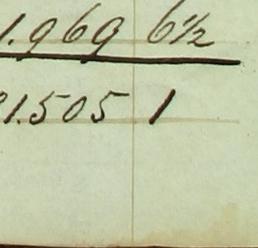 1.969 6½
1.505 1